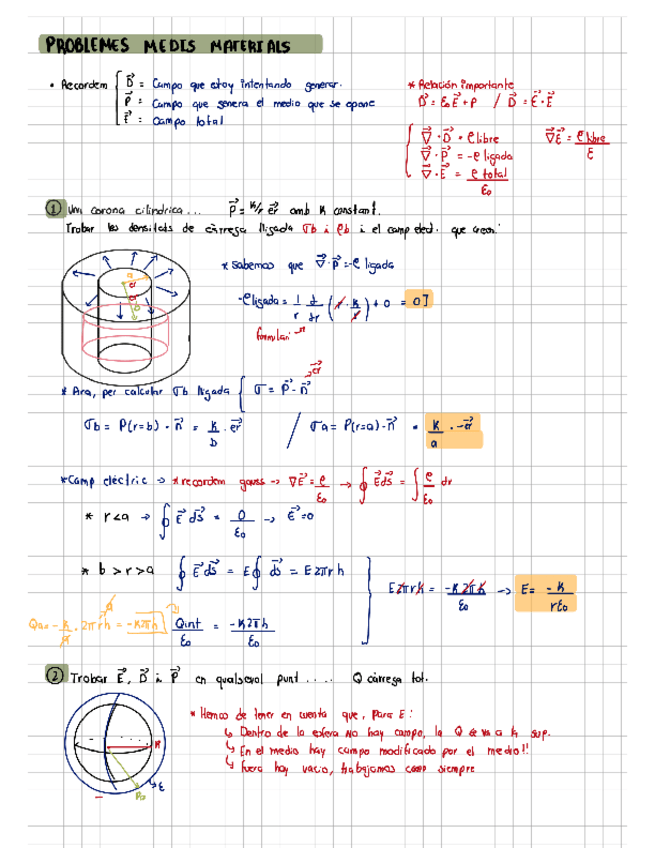 PROBLEMES MEDIS MATERIALS
• Recordem { D⃗ = Campo que estoy intentando generar.
P⃗ = Campo que genera el medio que se opone
E⃗ = Campo total
* Relación importante
D⃗ = ε₀E⃗ + P / D⃗ = ε·E⃗
∇⃗·D⃗ = ρ libre
∇⃗·P⃗ = -ρ ligada
∇⃗·E⃗ = ρ total / ε₀
∇⃗E⃗ = ρ libre / ε
① Una corona cilíndrica... P⃗ = K/r e⃗r amb K constant.
Trobar les densitats de càrrega lligada σb i ρb i el camp elect. que creen.
* Sabemos que ∇⃗·P⃗ = -ρ ligada
-ρ ligada = 1/r d/dr (r · K/r) + 0 = 0]
* Ara, per calcular σb lligada { σ = P⃗·n⃗
e⃗r
σb = P(r=b) · n⃗ = K/b · e⃗r / σa = P(r=a)·n⃗ = K/a · -e⃗r
* Camp elèctric → * recordem gauss → ∇E⃗ = ρ/ε₀ → ∮ E⃗ds⃗ = ∫ ρ/ε₀ dv
* r<a → ∮ E⃗ ds⃗ = 0/ε₀ → E⃗=0
* b > r > a ∮ E⃗ds⃗ = E∮ ds⃗ = E 2πrh
E2πrh = -K2πh / ε₀ → E = -K / rε₀
Qa = -K/a · 2πrh = -K2πh
a
Qint/ε₀ = -K2πh/ε₀
② Trobar E⃗, D⃗ i P⃗ en qualsevol punt .... Q càrrega tot.
* Hemos de tener en cuenta que, para E:
↳ Dentro de la esfera no hay campo, la Q se va a la sup.
↳ En el medio hay campo modificado por el medio!!
↳ Fuera hay vacío, trabajamos como siempre
R
ε